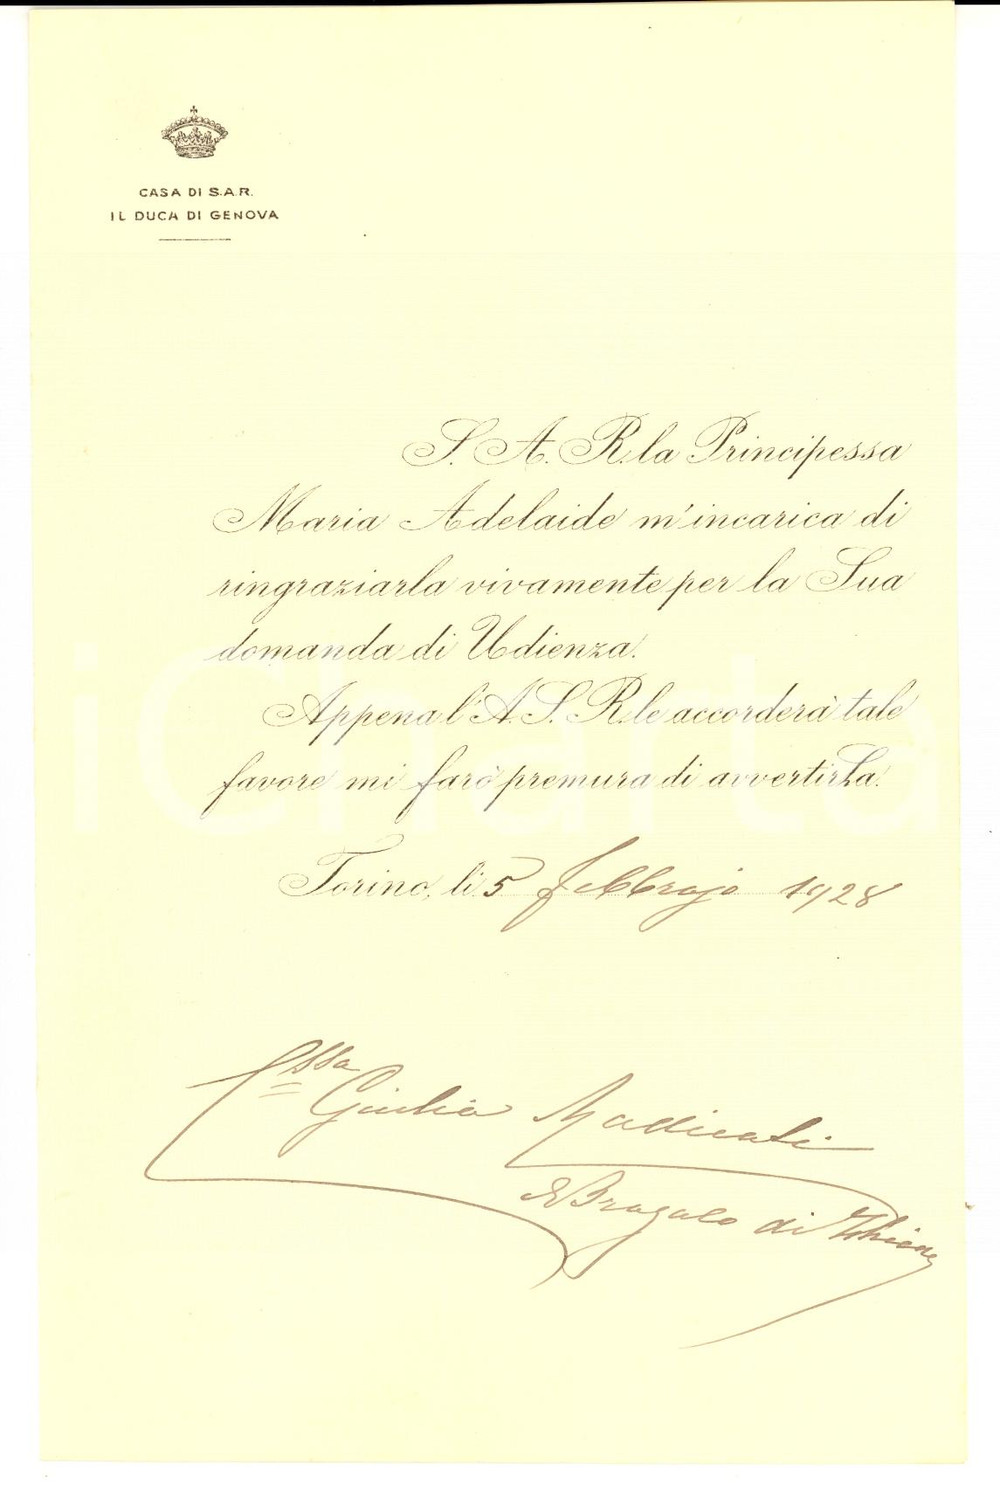 CASA DI S.A.R.
IL DUCA DI GENOVA
S. A. R. la Principessa
Maria Adelaide m'incarica di
ringraziarla vivamente per la Sua
domanda di Udienza.
Appena l'A. S. R. le accorderà tale
favore mi farò premura di avvertirLa.
Torino, lì 5 febbrajo 1928
C.ssa Giulia
di
iCharta